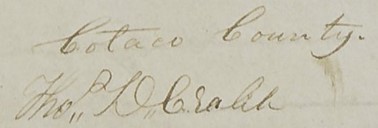 Cotaco County.
Thos,, D,, Crabb